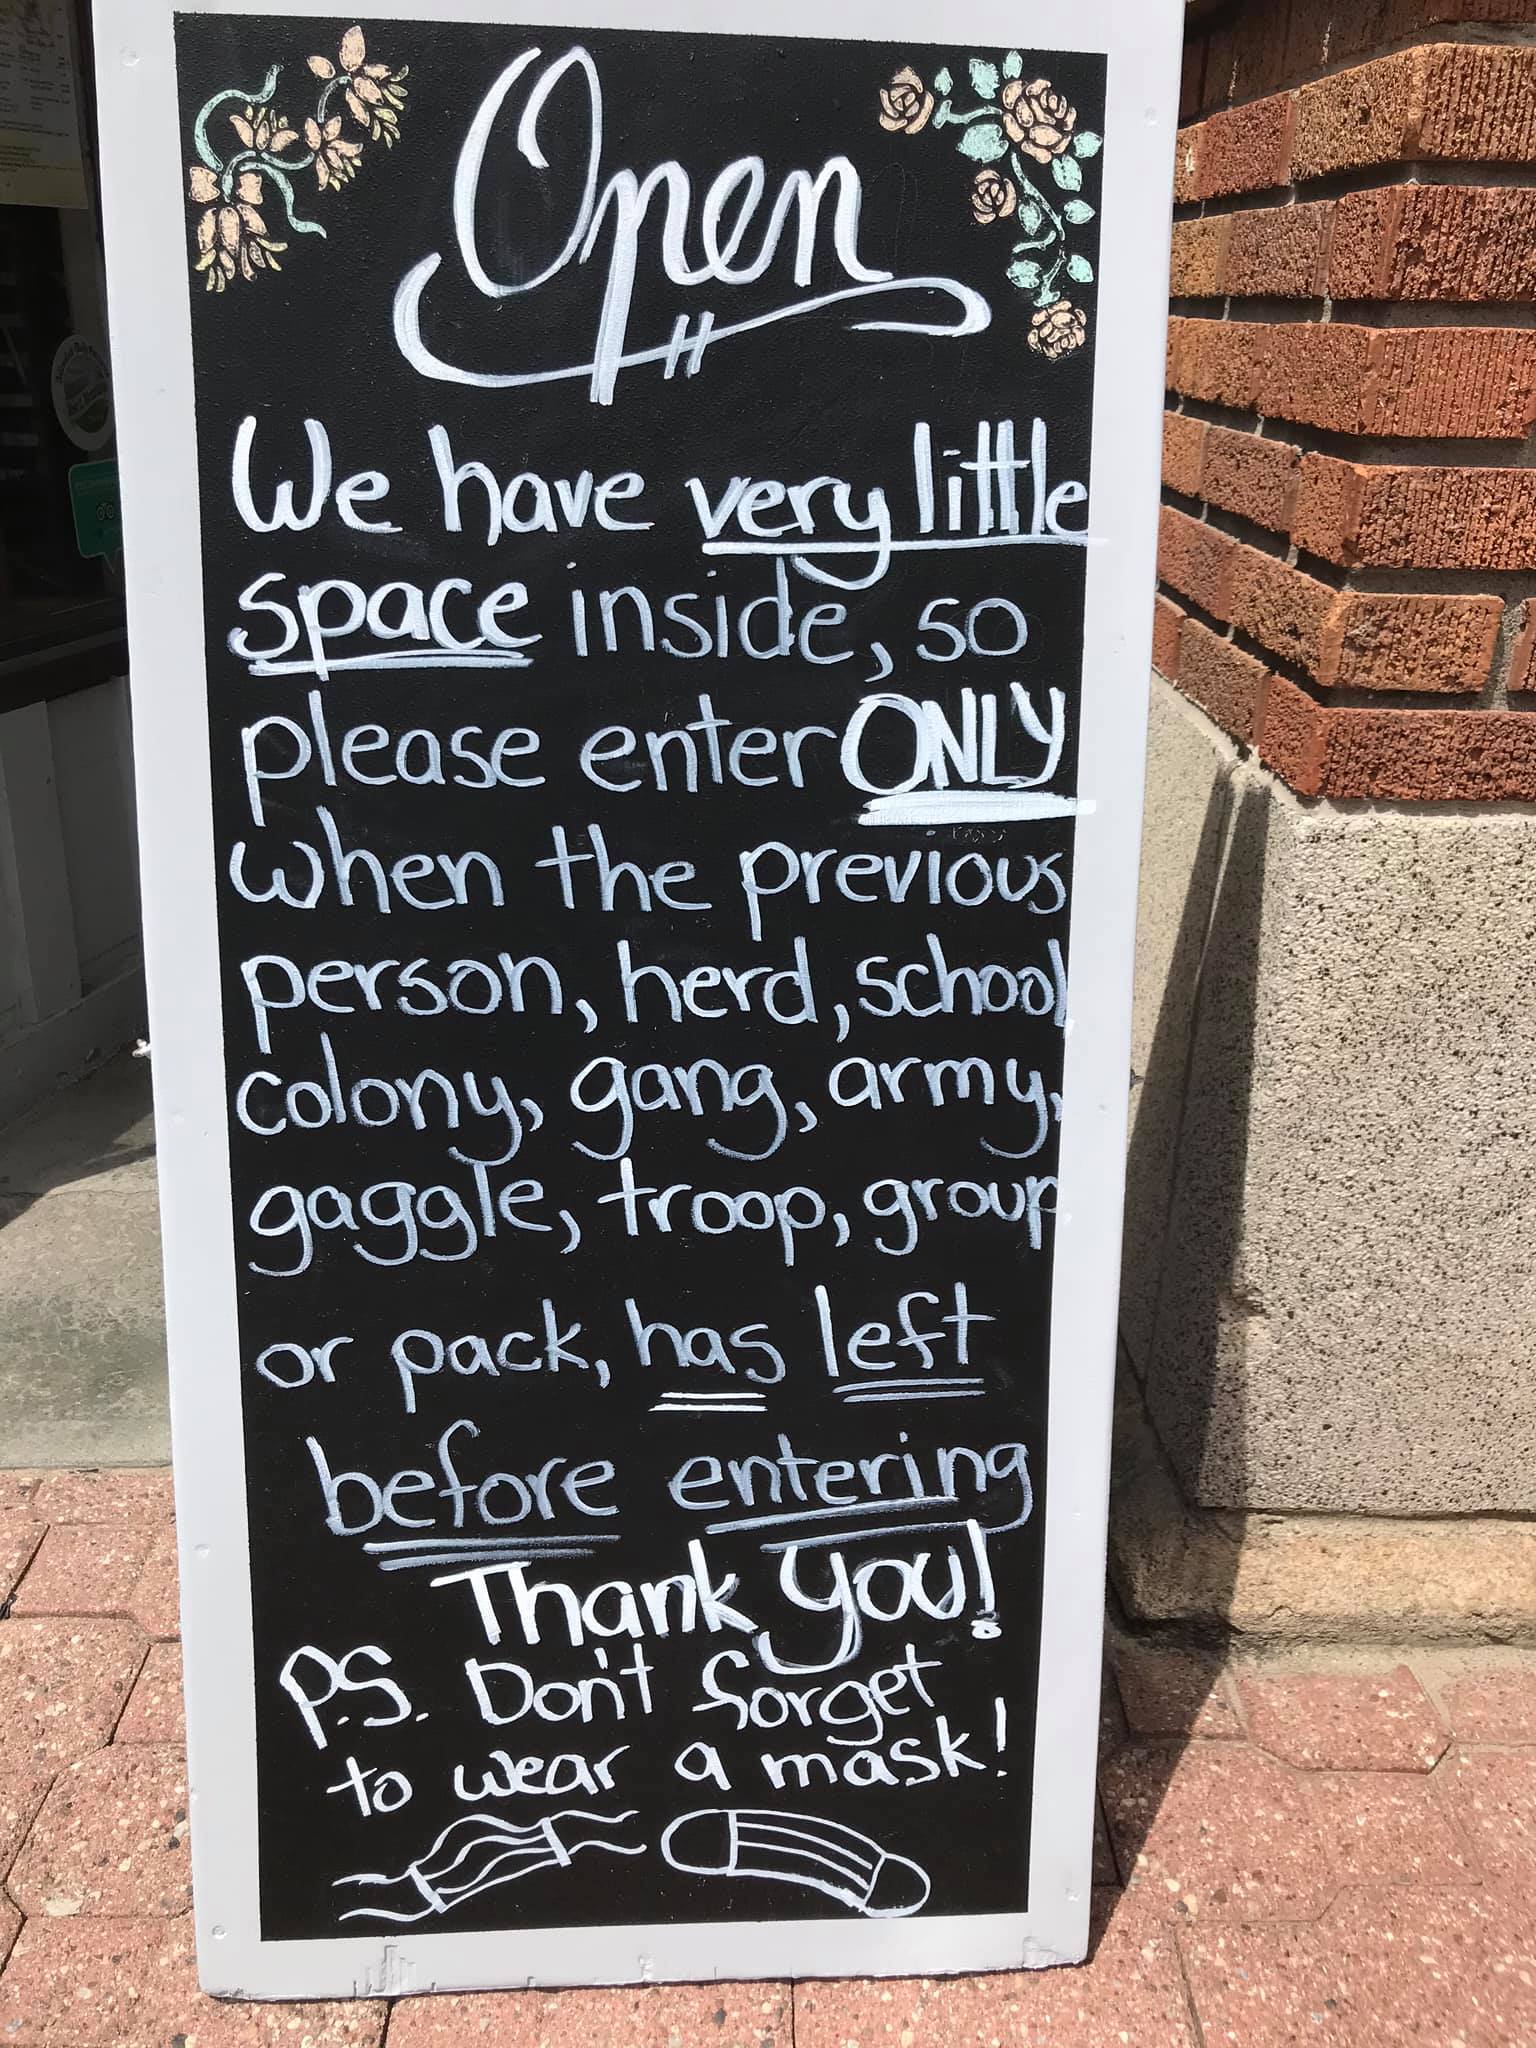 Open
We have very little
space inside, so
please enter ONLY
when the previous
person, herd, school
colony, gang, army,
gaggle, troop, group
or pack, has left
before entering
Thank you!
P.S. Don't forget
to wear a mask!